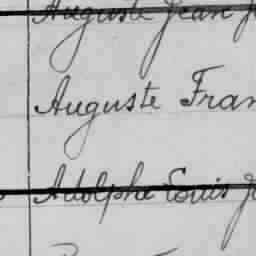 Auguste Jean
Auguste Fran
Adolphe Louis